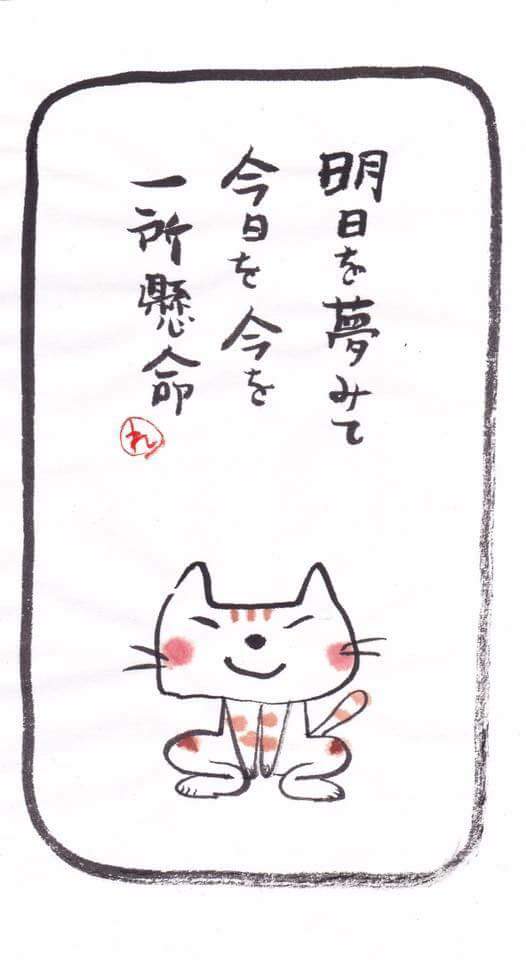 明日を夢みて
今日を今を
一所懸命
れ